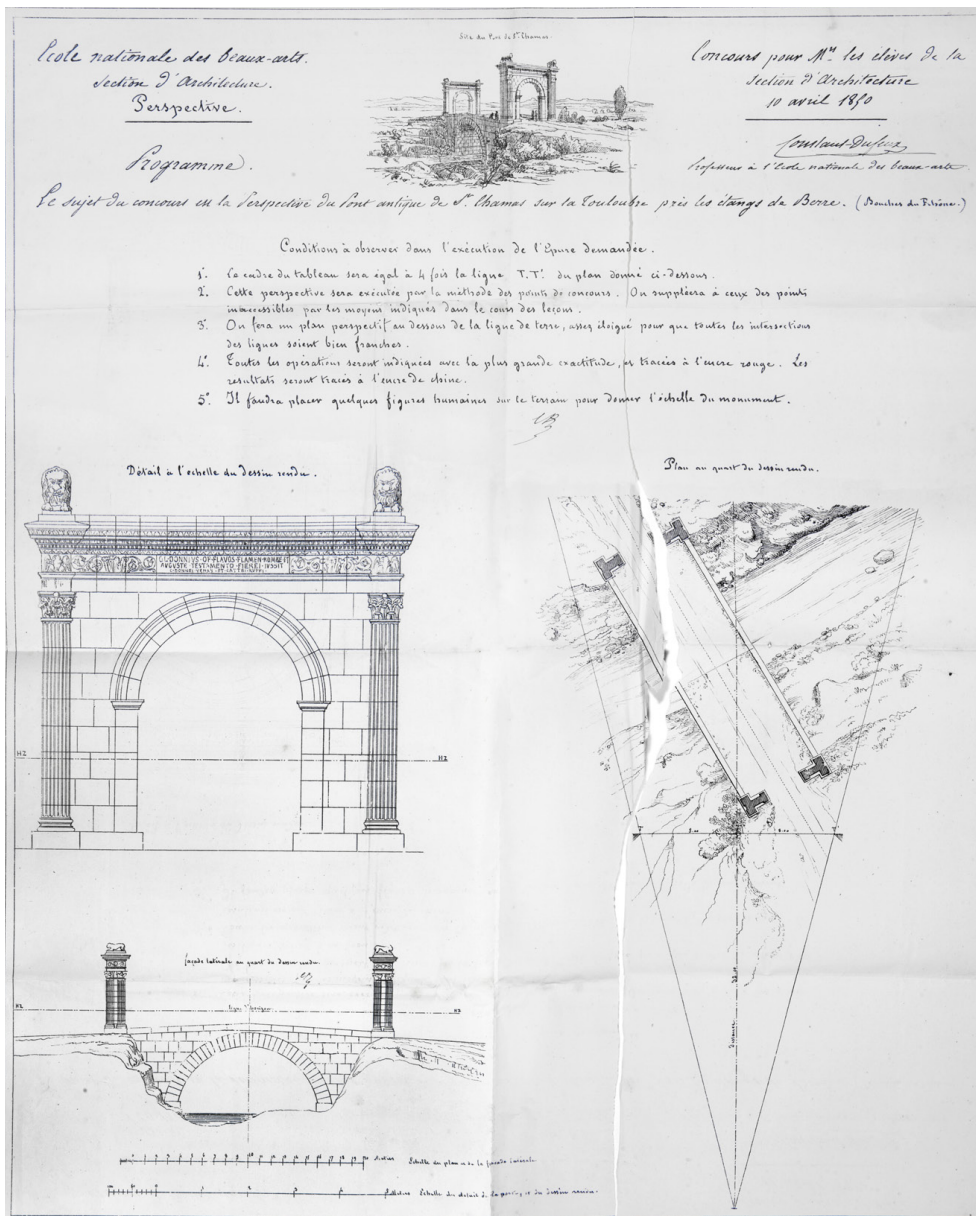 Site du Pont de St. Chamas.
Ecole nationale des beaux-arts.
Section d'Architecture.
Perspective.
Programme.
Concours pour Mrs les élèves de la
Section d'Architecture
10 avril 1850
Constant-Dufeux
Professeur à l'Ecole nationale des beaux-arts.
Le sujet du concours est la Perspective du Pont antique de St. Chamas sur la Touloubre près les étangs de Berre. (Bouches du Rhône.)
Conditions à observer dans l'exécution de l'Epure demandée.
1º. Le cadre du tableau sera égal à 4 fois la ligne T.T'. du plan donné ci-dessous.
2º. Cette perspective sera exécutée par la méthode des points de concours. On suppléera à ceux des points
inaccessibles par les moyens indiqués dans le cours des leçons.
3º. On fera un plan perspectif au dessous de la ligne de terre, assez éloigné pour que toutes les intersections
des lignes soient bien franches.
4º. Toutes les opérations seront indiquées avec la plus grande exactitude, et tracées à l'encre rouge. Les
resultats seront tracés à l'encre de chine.
5º. Il faudra placer quelques figures humaines sur le terrain pour donner l'échelle du monument.
Détail à l'echelle du dessin rendu.
Plan au quart du dessin rendu.
AUGUSTE TESTAMENTO FIEREI IVSSIT
HZ
HZ
T
5.00
5.00
T'
façade latérale au quart du dessin rendu.
HZ
ligne d'horizon
HZ
Distance
Mètres Echelle du plan et de la façade latérale.
5 Mètres Echelle du détail de la porte, et du dessin rendu.